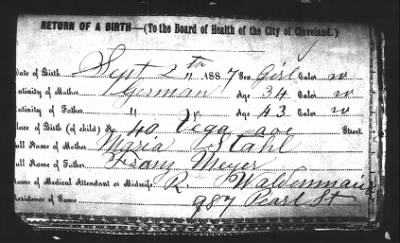 RETURN OF A BIRTH—(To the Board of Health of the City of Cleveland.)
Date of Birth Sept 2nd 1887 Sex Girl Color w
ativity of Mother German Age 34 Color w
ativity of Father " Age 43 Color w
lace of Birth (of child) By 40 Vega ave Street
ull Name of Mother Maria Stahl
ull Name of Father Franz Meyer
ame of Medical Attendant or Midwife R.
esidence of Same 987 Pearl St